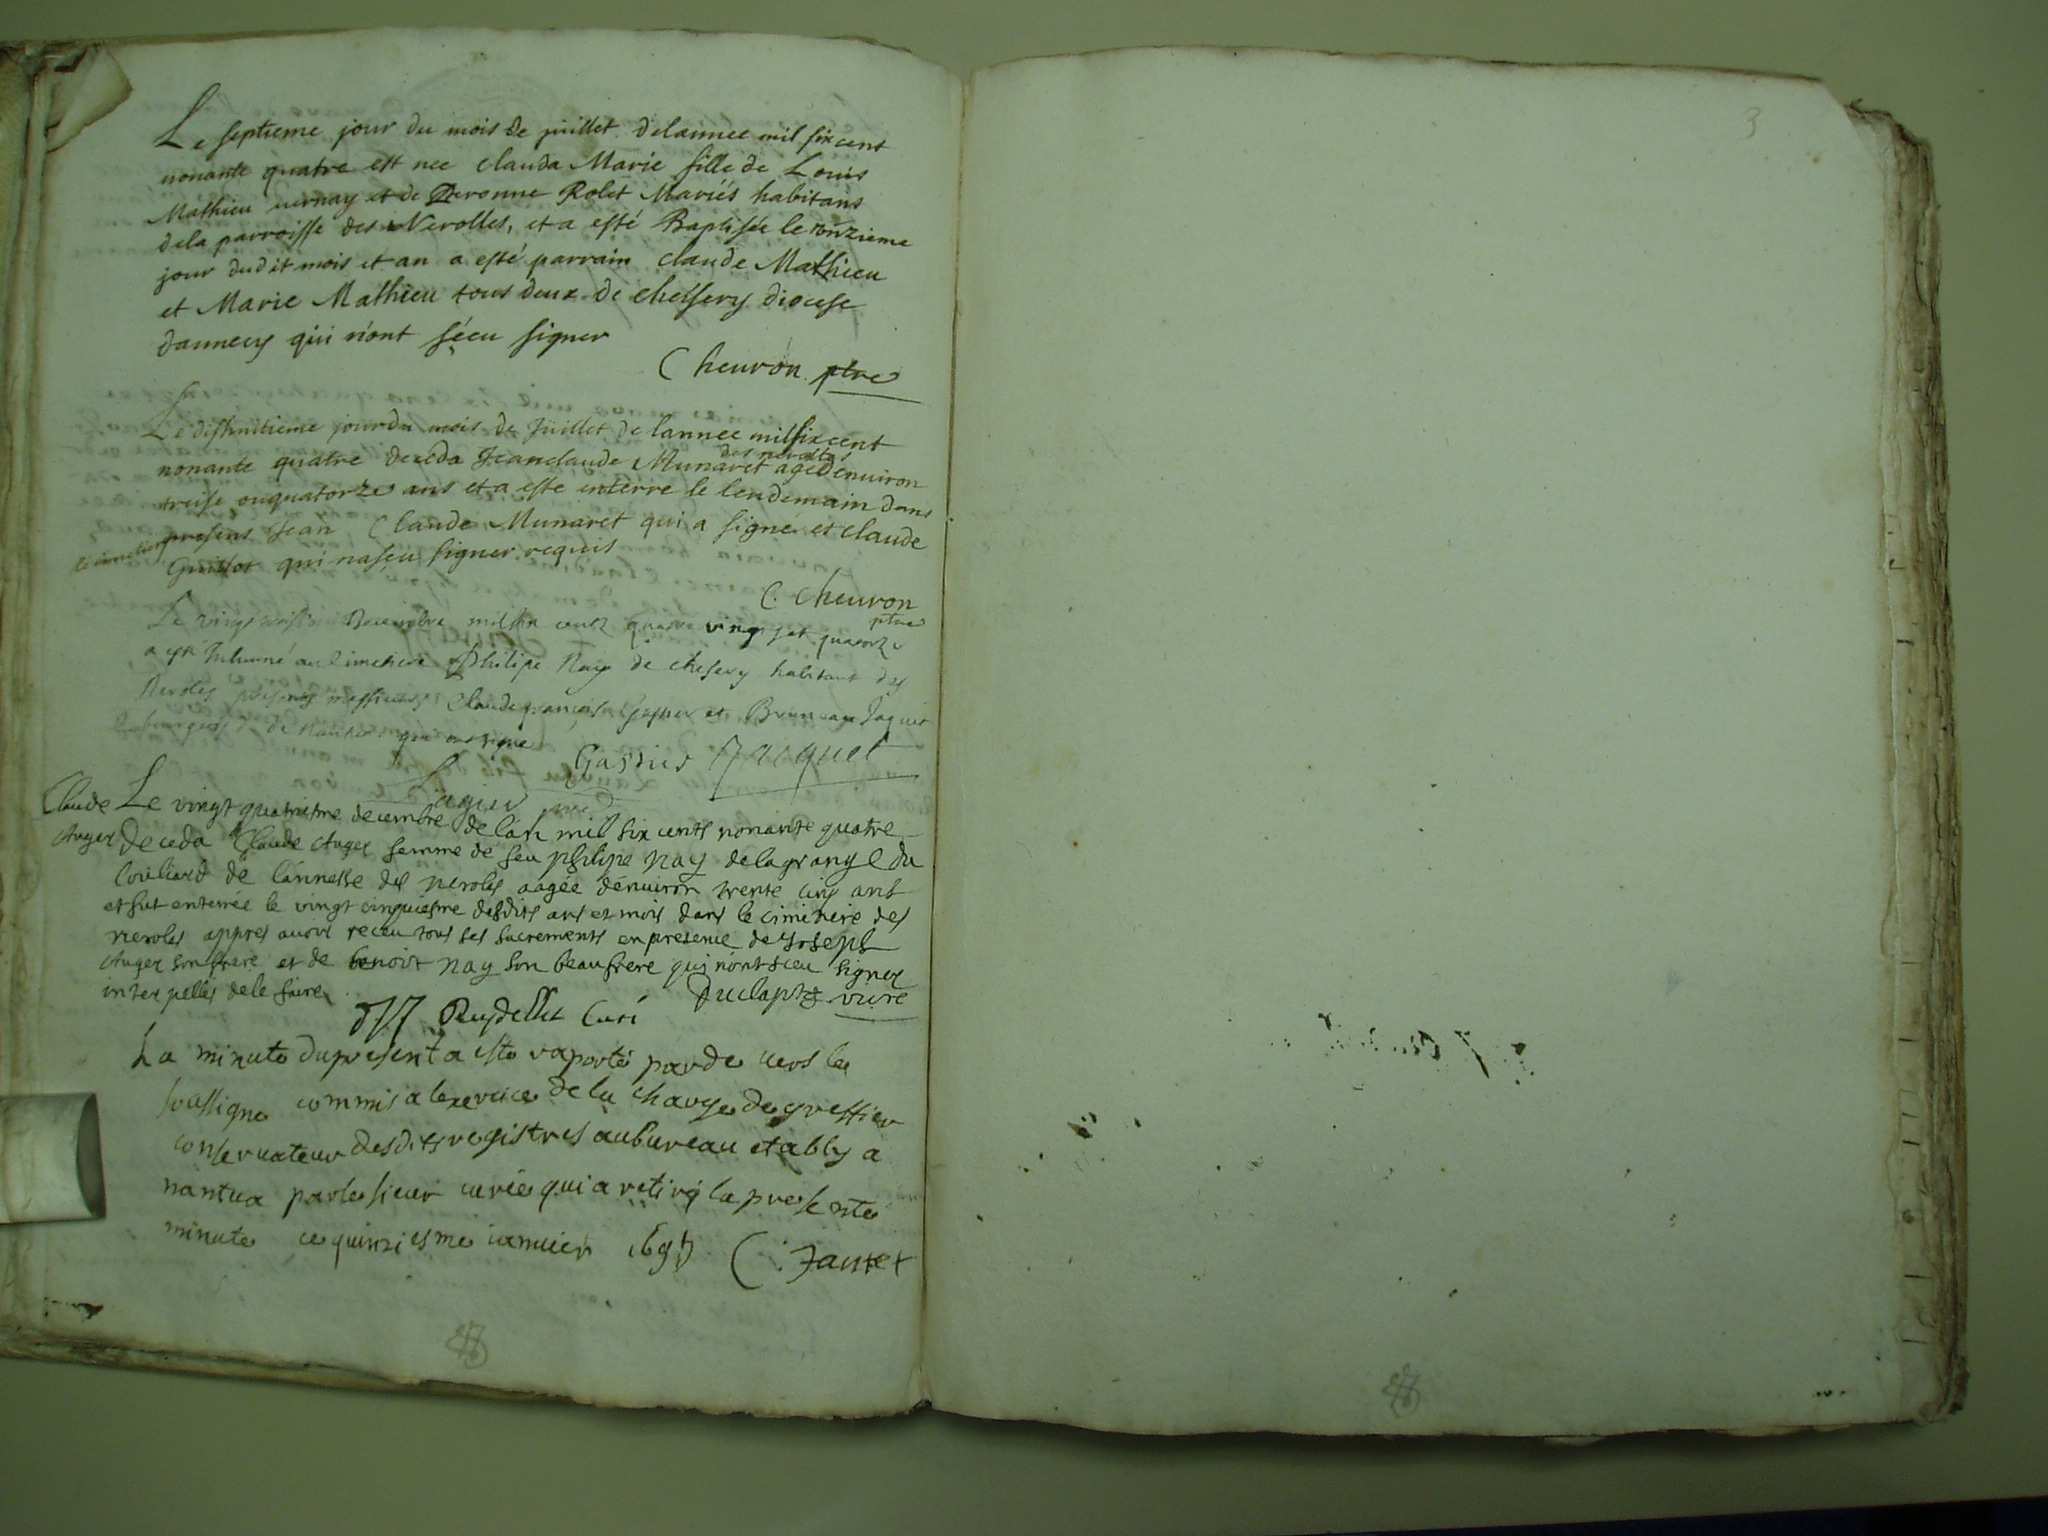 3
Le septieme jour du mois de juillet delannee mil six cent
nonante quatre est nee clauda Marie fille de Louis
Mathieu vernay et de Peronne Rolet Mariés habitans
dela parroisse des Nerolles, et a esté Baptisée le onzieme
jour dudit mois et an a esté parrain claude Mathieu
et Marie Mathieu tous deux de chesery diocese
dannecy qui n'ont sçeu signer
Cheuron ptre
Le dishuitieme jourdu mois de Juillet de lannee milsixcent
des nerolles
nonante quatre deceda Jeanclaude Munaret agé denuiron
treise ouquatorze ans et a este enterre le lendemain dans
le cimetiere presens Jean Claude Munaret qui a signe et claude
Guillot qui nasçeu signer requis
C. Cheuron
ptre
Le vingt Decembre mil six centz quatre vingt et quatorze
a esté Inhumé au Cimetiere Philipe Nay de chesery habitant des
Neroles presents messieurs Claude françois et Bruneau Jaquet
bourgeois de Nantua qui ont signe
Jacquet
Claude
Auger
Le vingt quatriesme decembre de lan mil six cents nonante quatre
deceda Claude Auger femme de feu philipe nay delagrange du
Couliard de lannesse des neroles aagée dénuiron trente cinq ans
et fut enterrée le vingt cinquiesme desdits ans et mois dans le cimitiere des
neroles appres auoir receu tous ses sacrements enpresence de Joseph
Auger son frere et de benoit nay son beaufrere qui n'ont sceu signer
interpellés dele faire
Ruydellet Curé
La minute dupresent a este raporté parde uers le
soussigne commis a lexercice de la charge de greffier
conseruateur desdits registres aubureau etably a
nantua parle sieur curé qui a retiré la presente
minute ce quinziesme ianuier 1695 C. Jantet